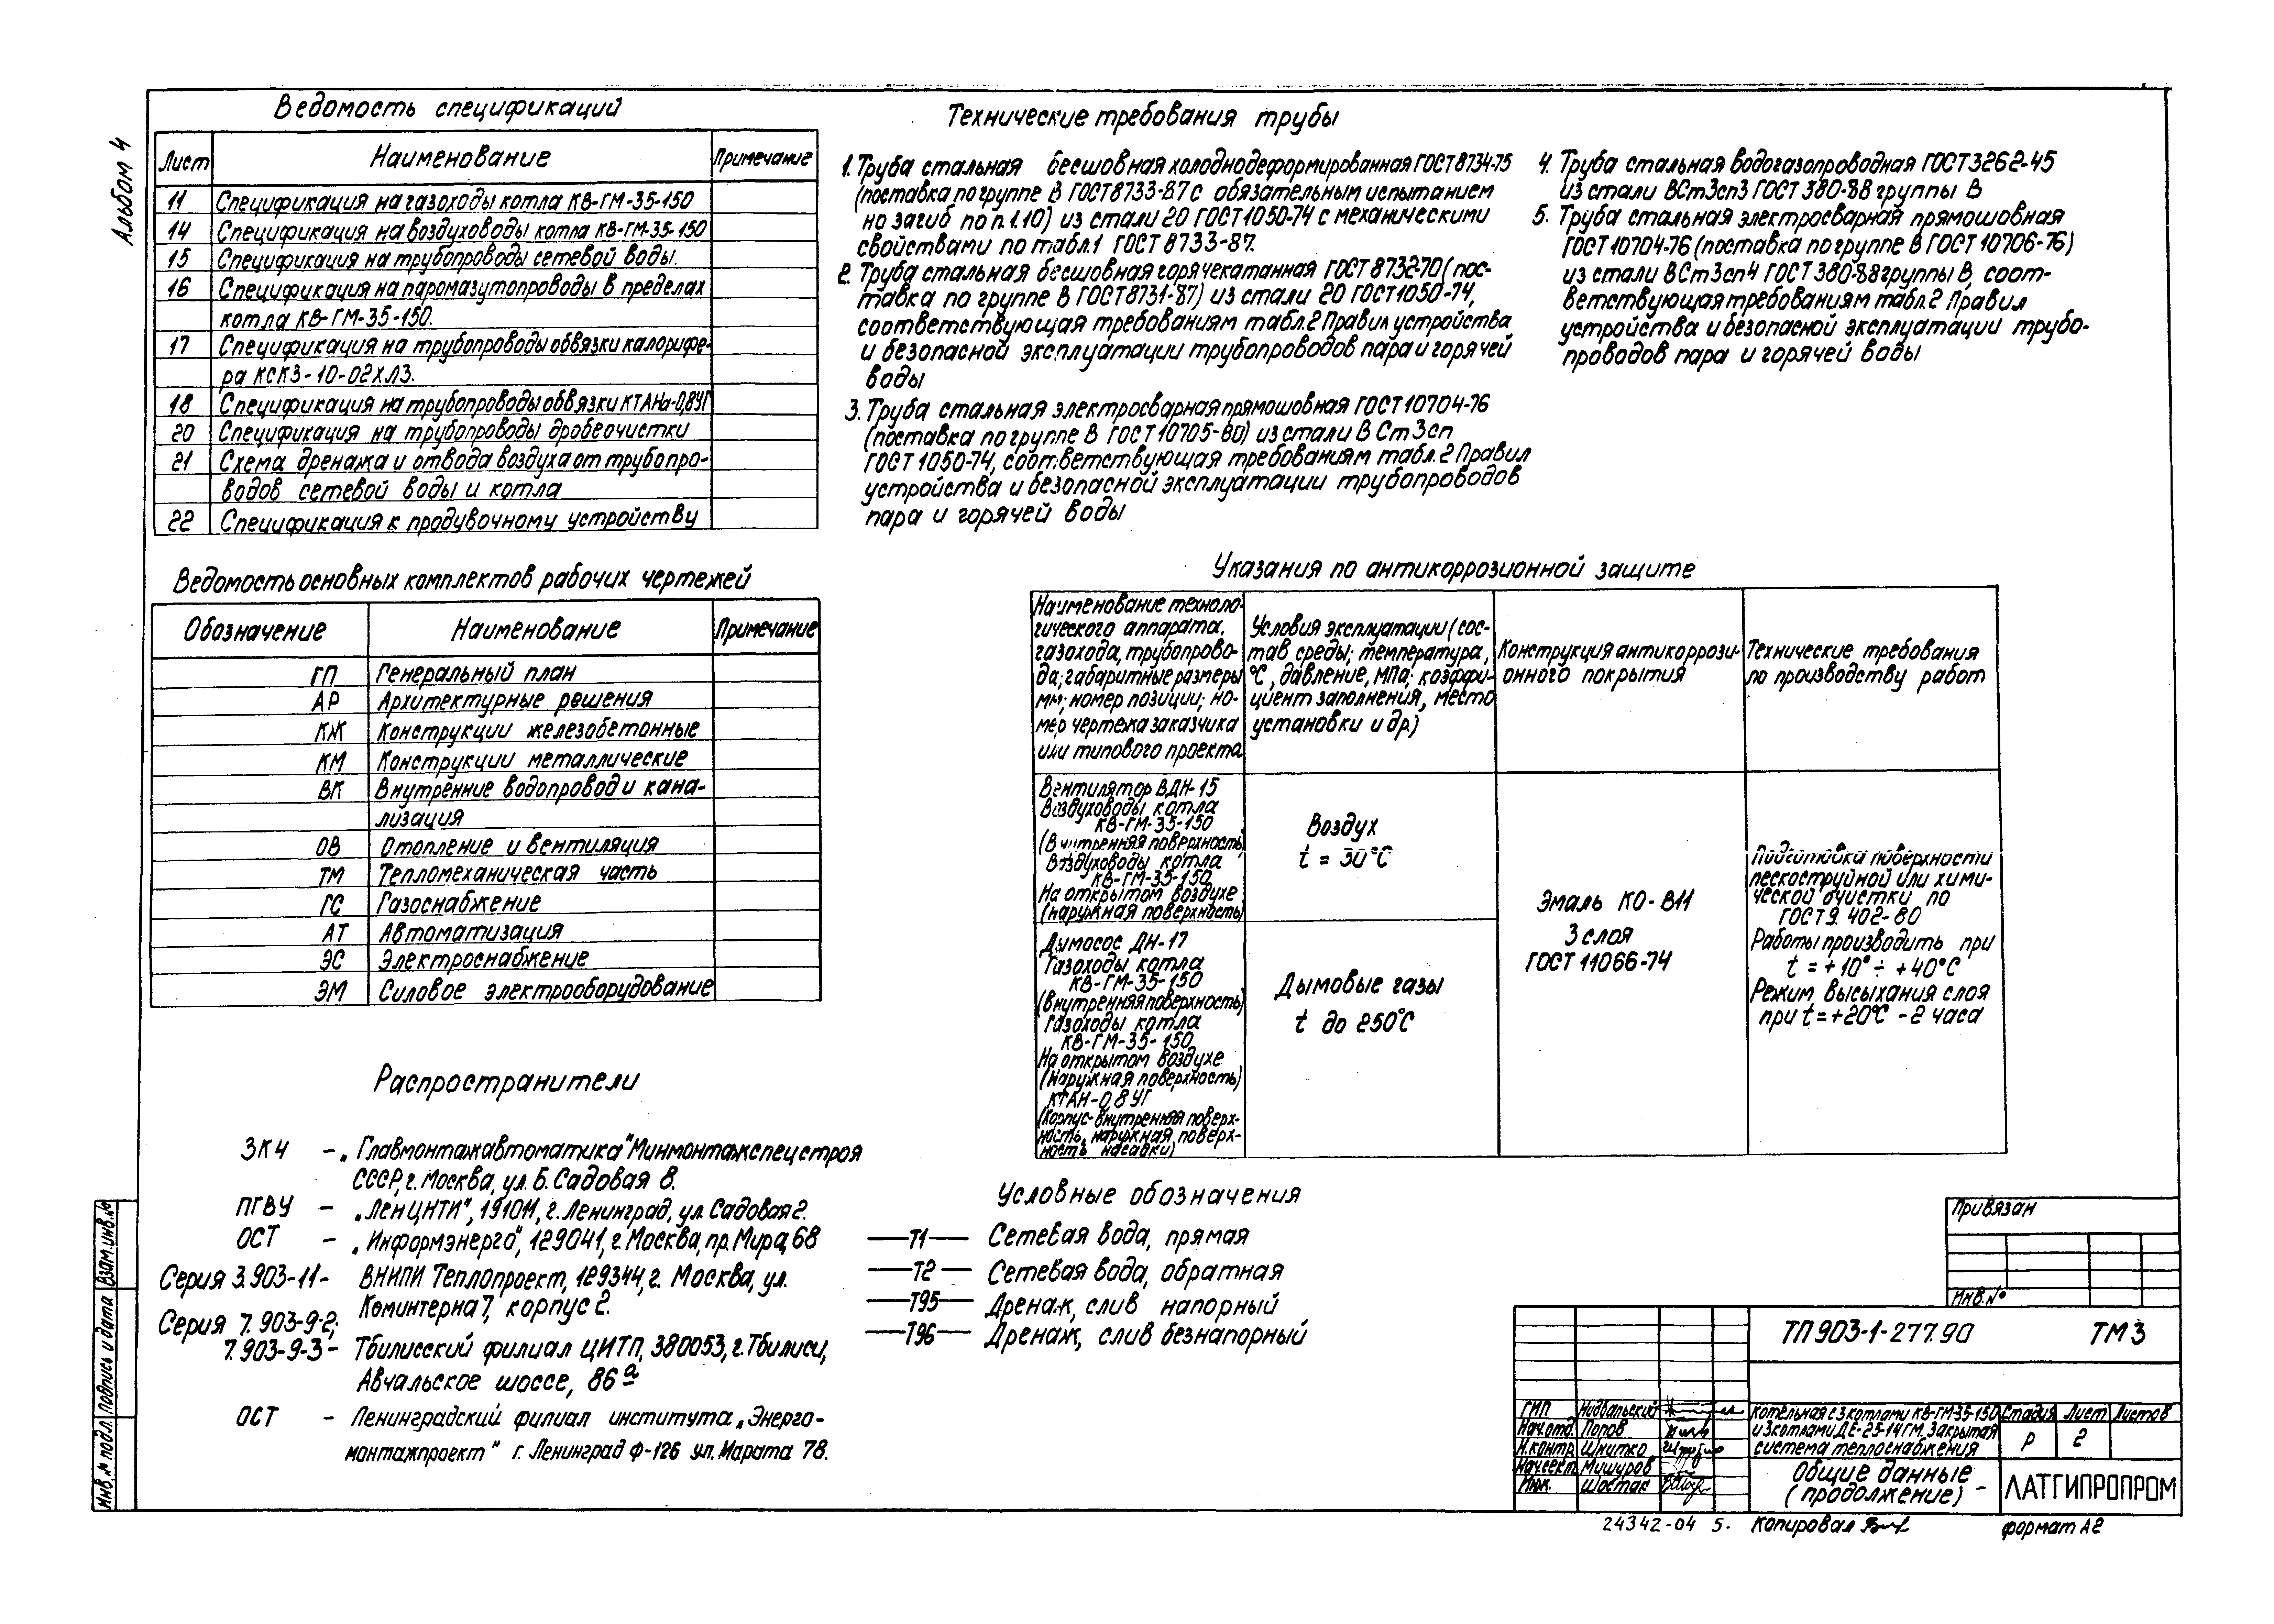 Альбом 4
Ведомость спецификаций
Лист
Наименование
Примечание
11 Спецификация на газоходы котла КВ-ГМ-35-150
14 Спецификация на воздуховоды котла КВ-ГМ-35-150
15 Спецификация на трубопроводы сетевой воды.
16 Спецификация на паромазутопроводы в пределах
котла КВ-ГМ-35-150.
17 Спецификация на трубопроводы обвязки калорифе-
ра КСК3-10-02ХЛ3.
18 Спецификация на трубопроводы обвязки КТАНа-0,8УГ
20 Спецификация на трубопроводы дробеочистки
21 Схема дренажа и отвода воздуха от трубопро-
водов сетевой воды и котла
22 Спецификация к продувочному устройству
Технические требования трубы
1. Труба стальная бесшовная холоднодеформированная ГОСТ 8734-75
(поставка по группе В ГОСТ 8733-87 с обязательным испытанием
на загиб по п.1.10) из стали 20 ГОСТ 1050-74 с механическими
свойствами по табл.1 ГОСТ 8733-87.
2. Труба стальная бесшовная горячекатанная ГОСТ 8732-70 (пос-
тавка по группе В ГОСТ 8731-87) из стали 20 ГОСТ 1050-74,
соответствующая требованиям табл.2 Правил устройства
и безопасной эксплуатации трубопроводов пара и горячей
воды
3. Труба стальная электросварная прямошовная ГОСТ 10704-76
(поставка по группе В ГОСТ 10705-80) из стали В Ст3сп
ГОСТ 1050-74, соответствующая требованиям табл.2 Правил
устройства и безопасной эксплуатации трубопроводов
пара и горячей воды
4. Труба стальная водогазопроводная ГОСТ 3262-45
из стали ВСт3сп3 ГОСТ 380-88 группы В
5. Труба стальная электросварная прямошовная
ГОСТ 10704-76 (поставка по группе В ГОСТ 10706-76)
из стали ВСт3сп4 ГОСТ 380-88 группы В, соот-
ветствующая требованиям табл.2 Правил
устройства и безопасной эксплуатации трубо-
проводов пара и горячей воды
Ведомость основных комплектов рабочих чертежей
Обозначение
Наименование
Примечание
ГП Генеральный план
АР Архитектурные решения
КЖ Конструкции железобетонные
КМ Конструкции металлические
ВК Внутренние водопровод и кана-
лизация
ОВ Отопление и вентиляция
ТМ Тепломеханическая часть
ГС Газоснабжение
АТ Автоматизация
ЭС Электроснабжение
ЭМ Силовое электрооборудование
Указания по антикоррозионной защите
Наименование техноло-
гического аппарата,
газохода, трубопрово-
да; габаритные размеры
мм; номер позиции; но-
мер чертежа заказчика
или типового проекта
Условия эксплуатации (сос-
тав среды; температура,
°С, давление, МПа; коэффи-
циент заполнения, место
установки и др.)
Конструкция антикоррози-
онного покрытия
Технические требования
по производству работ
Вентилятор ВДН-15
Воздуховоды котла
КВ-ГМ-35-150
(Внутренняя поверхность)
Воздуховоды котла
КВ-ГМ-35-150
На открытом воздухе
(наружная поверхность)
Воздух
t = 30°С
Дымосос ДН-17
Газоходы котла
КВ-ГМ-35-150
(Внутренняя поверхность)
Газоходы котла
КВ-ГМ-35-150
На открытом воздухе
(Наружная поверхность)
КТАН-0,8 УГ
(Корпус-внутренняя поверх-
ность, наружная поверх-
ность насадки)
Дымовые газы
t до 250°С
Эмаль КО-811
3 слоя
ГОСТ 11066-74
Подготовка поверхности
пескоструйной или хими-
ческой очистки по
ГОСТ 9.402-80
Работы производить при
t = +10° ÷ +40°С
Режим высыхания слоя
при t = +20°С - 2 часа
Распространители
ЗКЧ - „Главмонтажавтоматика" Минмонтажспецстроя
СССР, г. Москва, ул. Б. Садовая 8.
ПГВУ - „ЛенЦНТИ", 191011, г. Ленинград, ул. Садовая 2.
ОСТ - „Информэнерго", 129041, г. Москва, пр. Мира, 68
Серия 3.903-11- ВНИПИ Теплопроект, 129344, г. Москва, ул.
Коминтерна 7, корпус 2.
Серия 7.903-9-2;
7.903-9-3 - Тбилисский филиал ЦИТП, 380053, г. Тбилиси,
Авчальское шоссе, 86 а
ОСТ - Ленинградский филиал института „Энерго-
монтажпроект" г. Ленинград Ф-126 ул. Марата 78.
Условные обозначения
Т1 Сетевая вода, прямая
Т2 Сетевая вода, обратная
Т95 Дренаж, слив напорный
Т96 Дренаж, слив безнапорный
Привязан
Инв. №
ТП 903-1-277.90 ТМ3
ГИП Нидбальский
Нач.отд. Попов
Н.контр. Шнитко
Нач.сект. Мишуров
Инж. Шостак
Котельная с 3 котлами КВ-ГМ-35-150
и 3 котлами ДЕ-25-14ГМ. Закрытая
система теплоснабжения
Стадия Лист Листов
Р 2
Общие данные
(продолжение)
ЛАТГИПРОПРОМ
24342-04 5. Копировал формат А2
Взам.инв.№
Подпись и дата
Инв.№ подл.